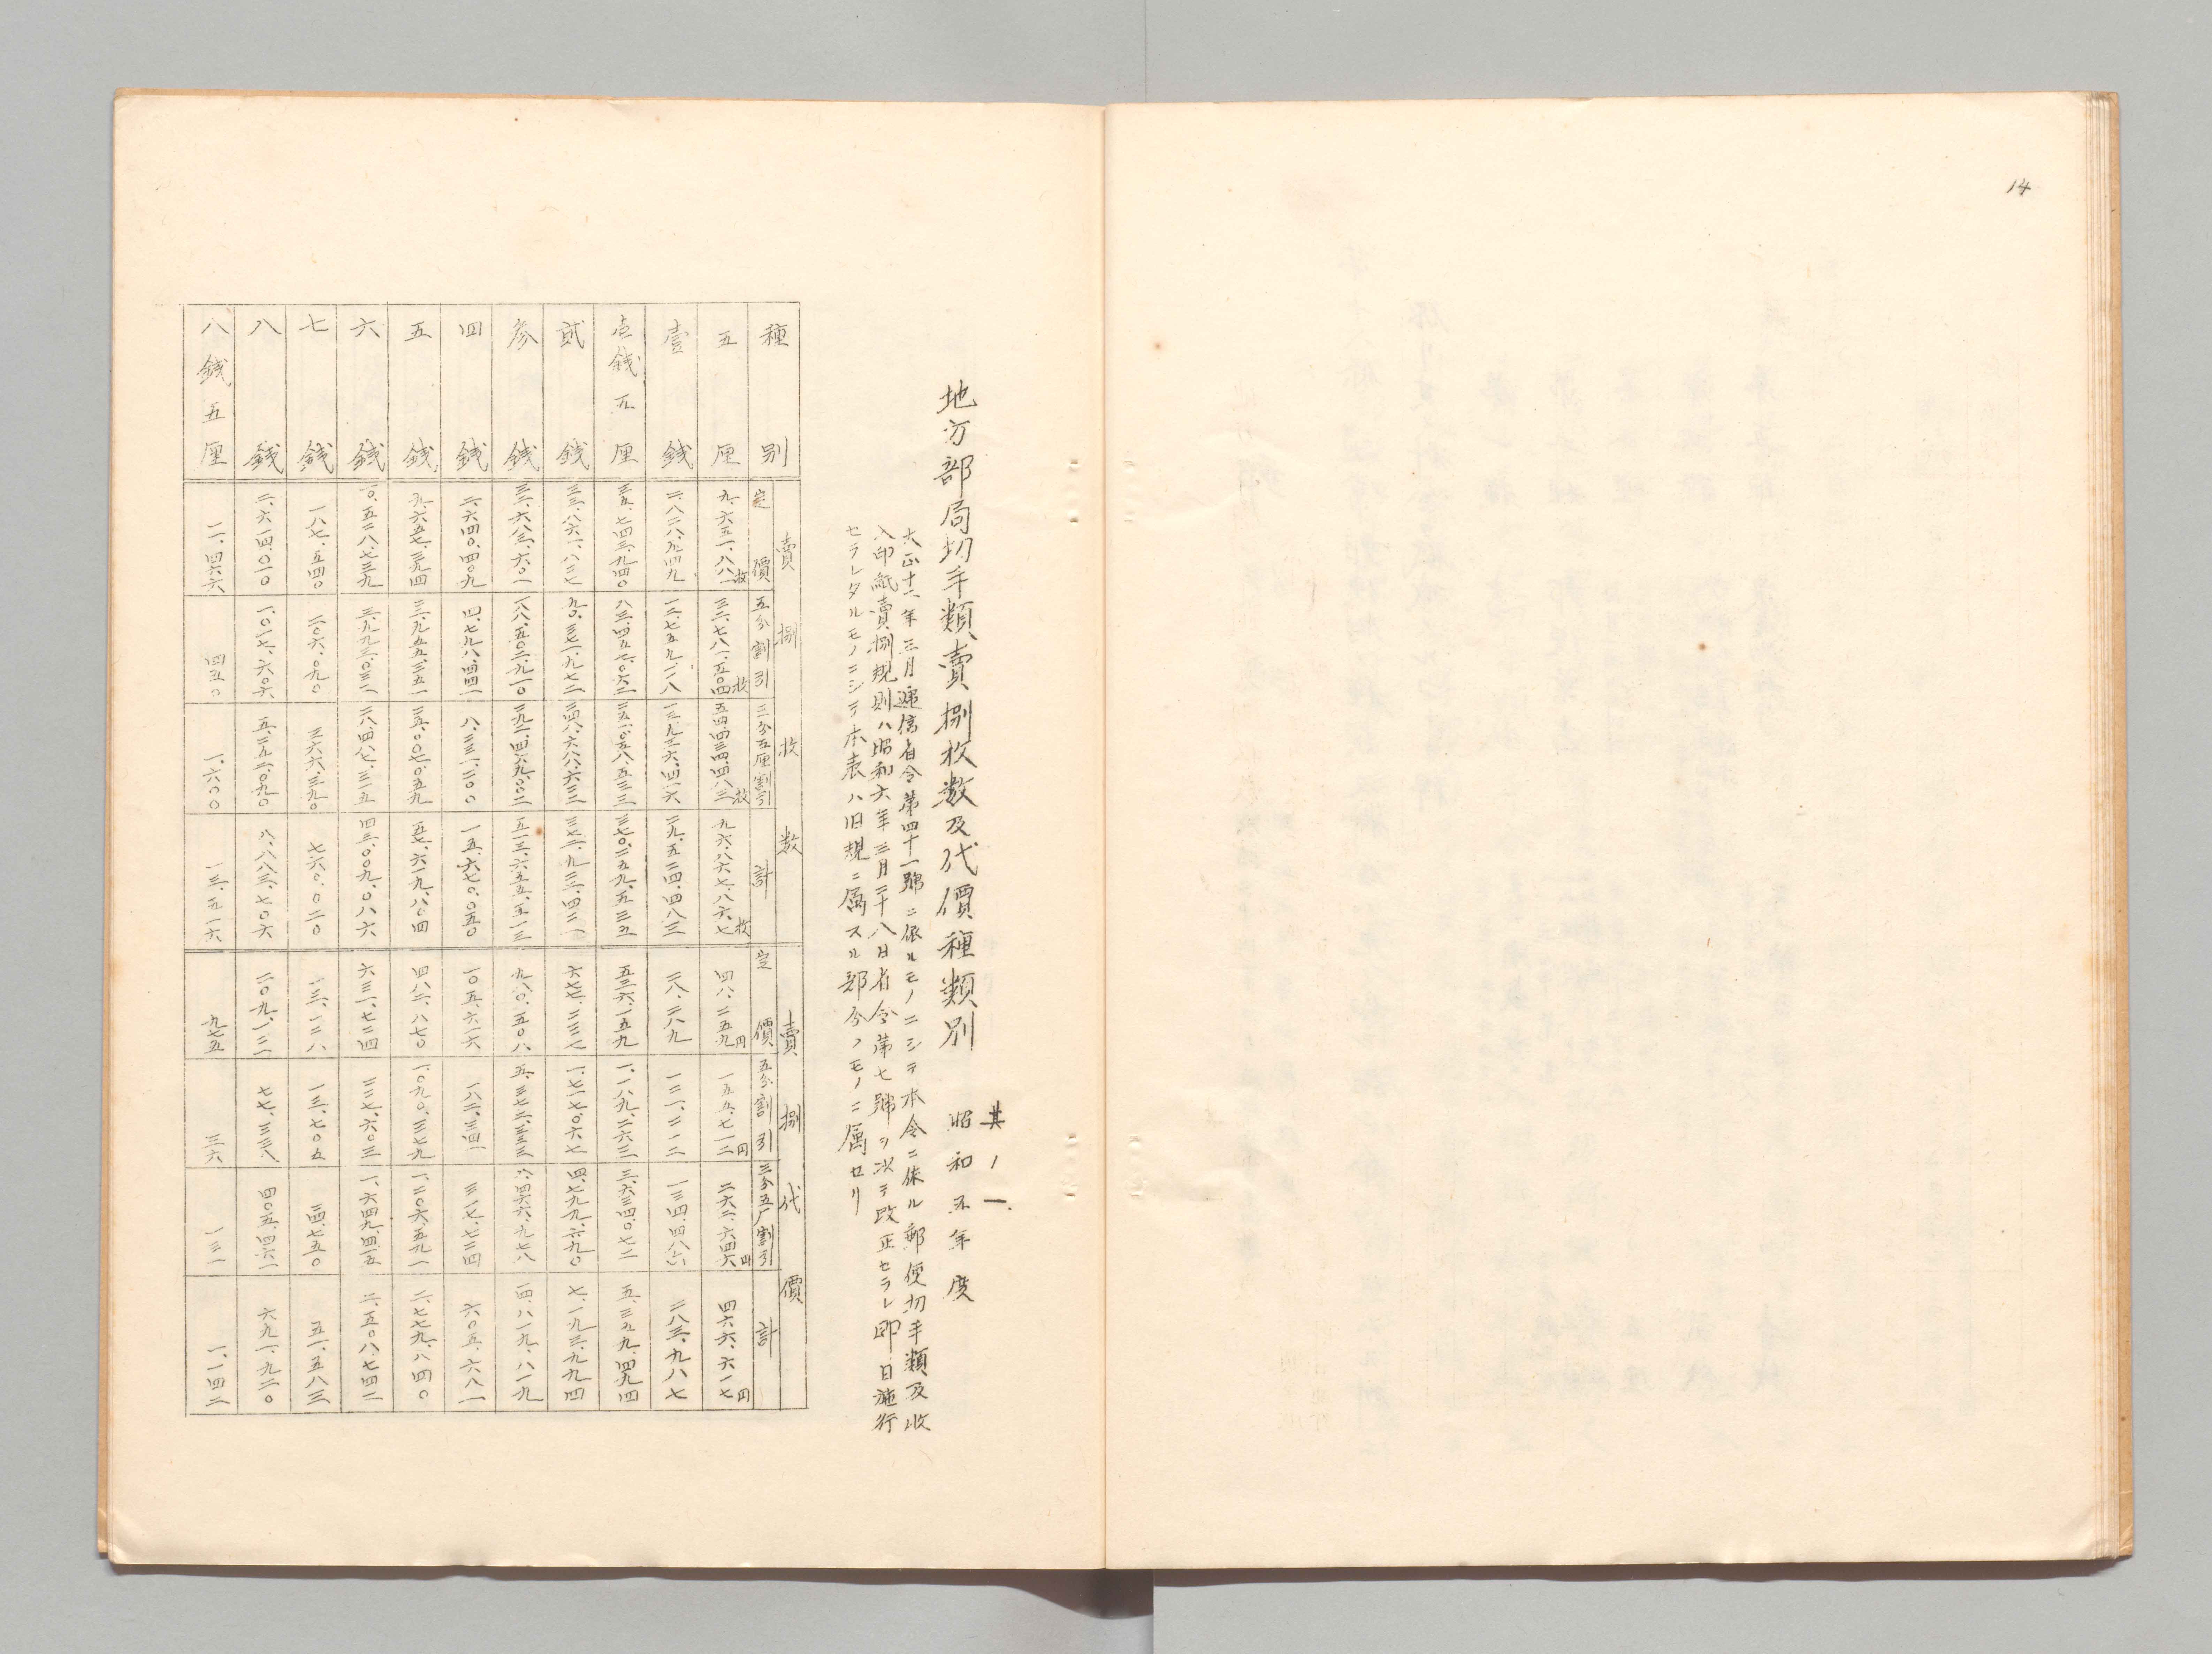 14
其ノ一
地方部局切手類賣捌枚数及代價種類別 昭和五年度
大正十六年三月遞信省令第四十一號ニ依ルモノニシテ本令ニ依ル郵便切手類及收
入印紙賣捌規則ハ昭和六年三月二十八日省令第七號ヲ以テ改正セラレ即日施行
セラレタルモノニシテ本表ハ旧規ニ属スル部分ノモノニ属セリ
賣捌枚数 賣捌代價
種別 定價 五分割引 三分五厘割引 計 定價 五分割引 三分五厂割引 計
五厘 九、六五一、八八〇枚 三二、七八一、五〇四枚 五四、四三四、四八三枚 九六、八六七、八六七枚 四八、二五九円 一五五、七一二円 二六二、六四六円 四六六、六一七円
壹銭 二、八二八、九四九 一二、七五九、一一八 一三、九三六、四一六 二九、五二四、四八三 二八、二八九 一二一、二一二 一三四、四八六 二八三、九八七
壱銭五厘 三五、七四三、九四〇 八三、四五七、〇六二 二五一、〇五八、五三三 三七〇、二五九、五三五 五三六、一五九 一、一八九、二六三 三、六三四、〇七二 五、三五九、四九四
貳銭 三三、八六一、八二七 九〇、三七一、九七二 二四八、六八八、六二二 三七二、九二二、四二一 六七七、二三七 一、七一七、〇六七 四、七九九、六九〇 七、一九三、九九四
参銭 三二、六八三、六〇一 一八八、五〇二、九一〇 二九二、四六九、〇〇二 五一三、六五五、五一三 九八〇、五〇八 五、三七二、三三三 八、四六六、九七八 一四、八一九、八一九
四銭 二、六四〇、四〇九 四、七九八、四四一 八、二三一、二〇〇 一五、六七〇、〇五〇 一〇五、六一六 一八二、三四一 三一七、七二四 六〇五、六八一
五銭 九、六五七、三九四 二二、九五五、三五一 二五、〇〇七、〇五九 五七、六一九、八〇四 四八二、八七〇 一、〇九〇、三七九 一、二〇六、五九一 二、七七九、八四〇
六銭 一〇、五二八、七三九 三、九九三、〇三二 二八、四八七、三一五 四三、〇〇九、〇八六 六三一、七二四 二二七、六〇三 一、六四九、四一五 二、五〇八、七四二
七銭 一八七、五四〇 二〇六、〇九〇 三六六、三九〇 七六〇、〇二〇 一三、一二八 一三、七〇五 二四、七五〇 五一、五八三
八銭 二、六一四、〇一〇 一、〇一七、六〇六 五、二五二、〇九〇 八、八八三、七〇六 二〇九、一二一 七七、三三八 四〇五、四六一 六九一、九二〇
八銭五厘 一一、四六六 四五〇 一、六〇〇 一三、五一六 九七五 三六 一三一 一、一四二